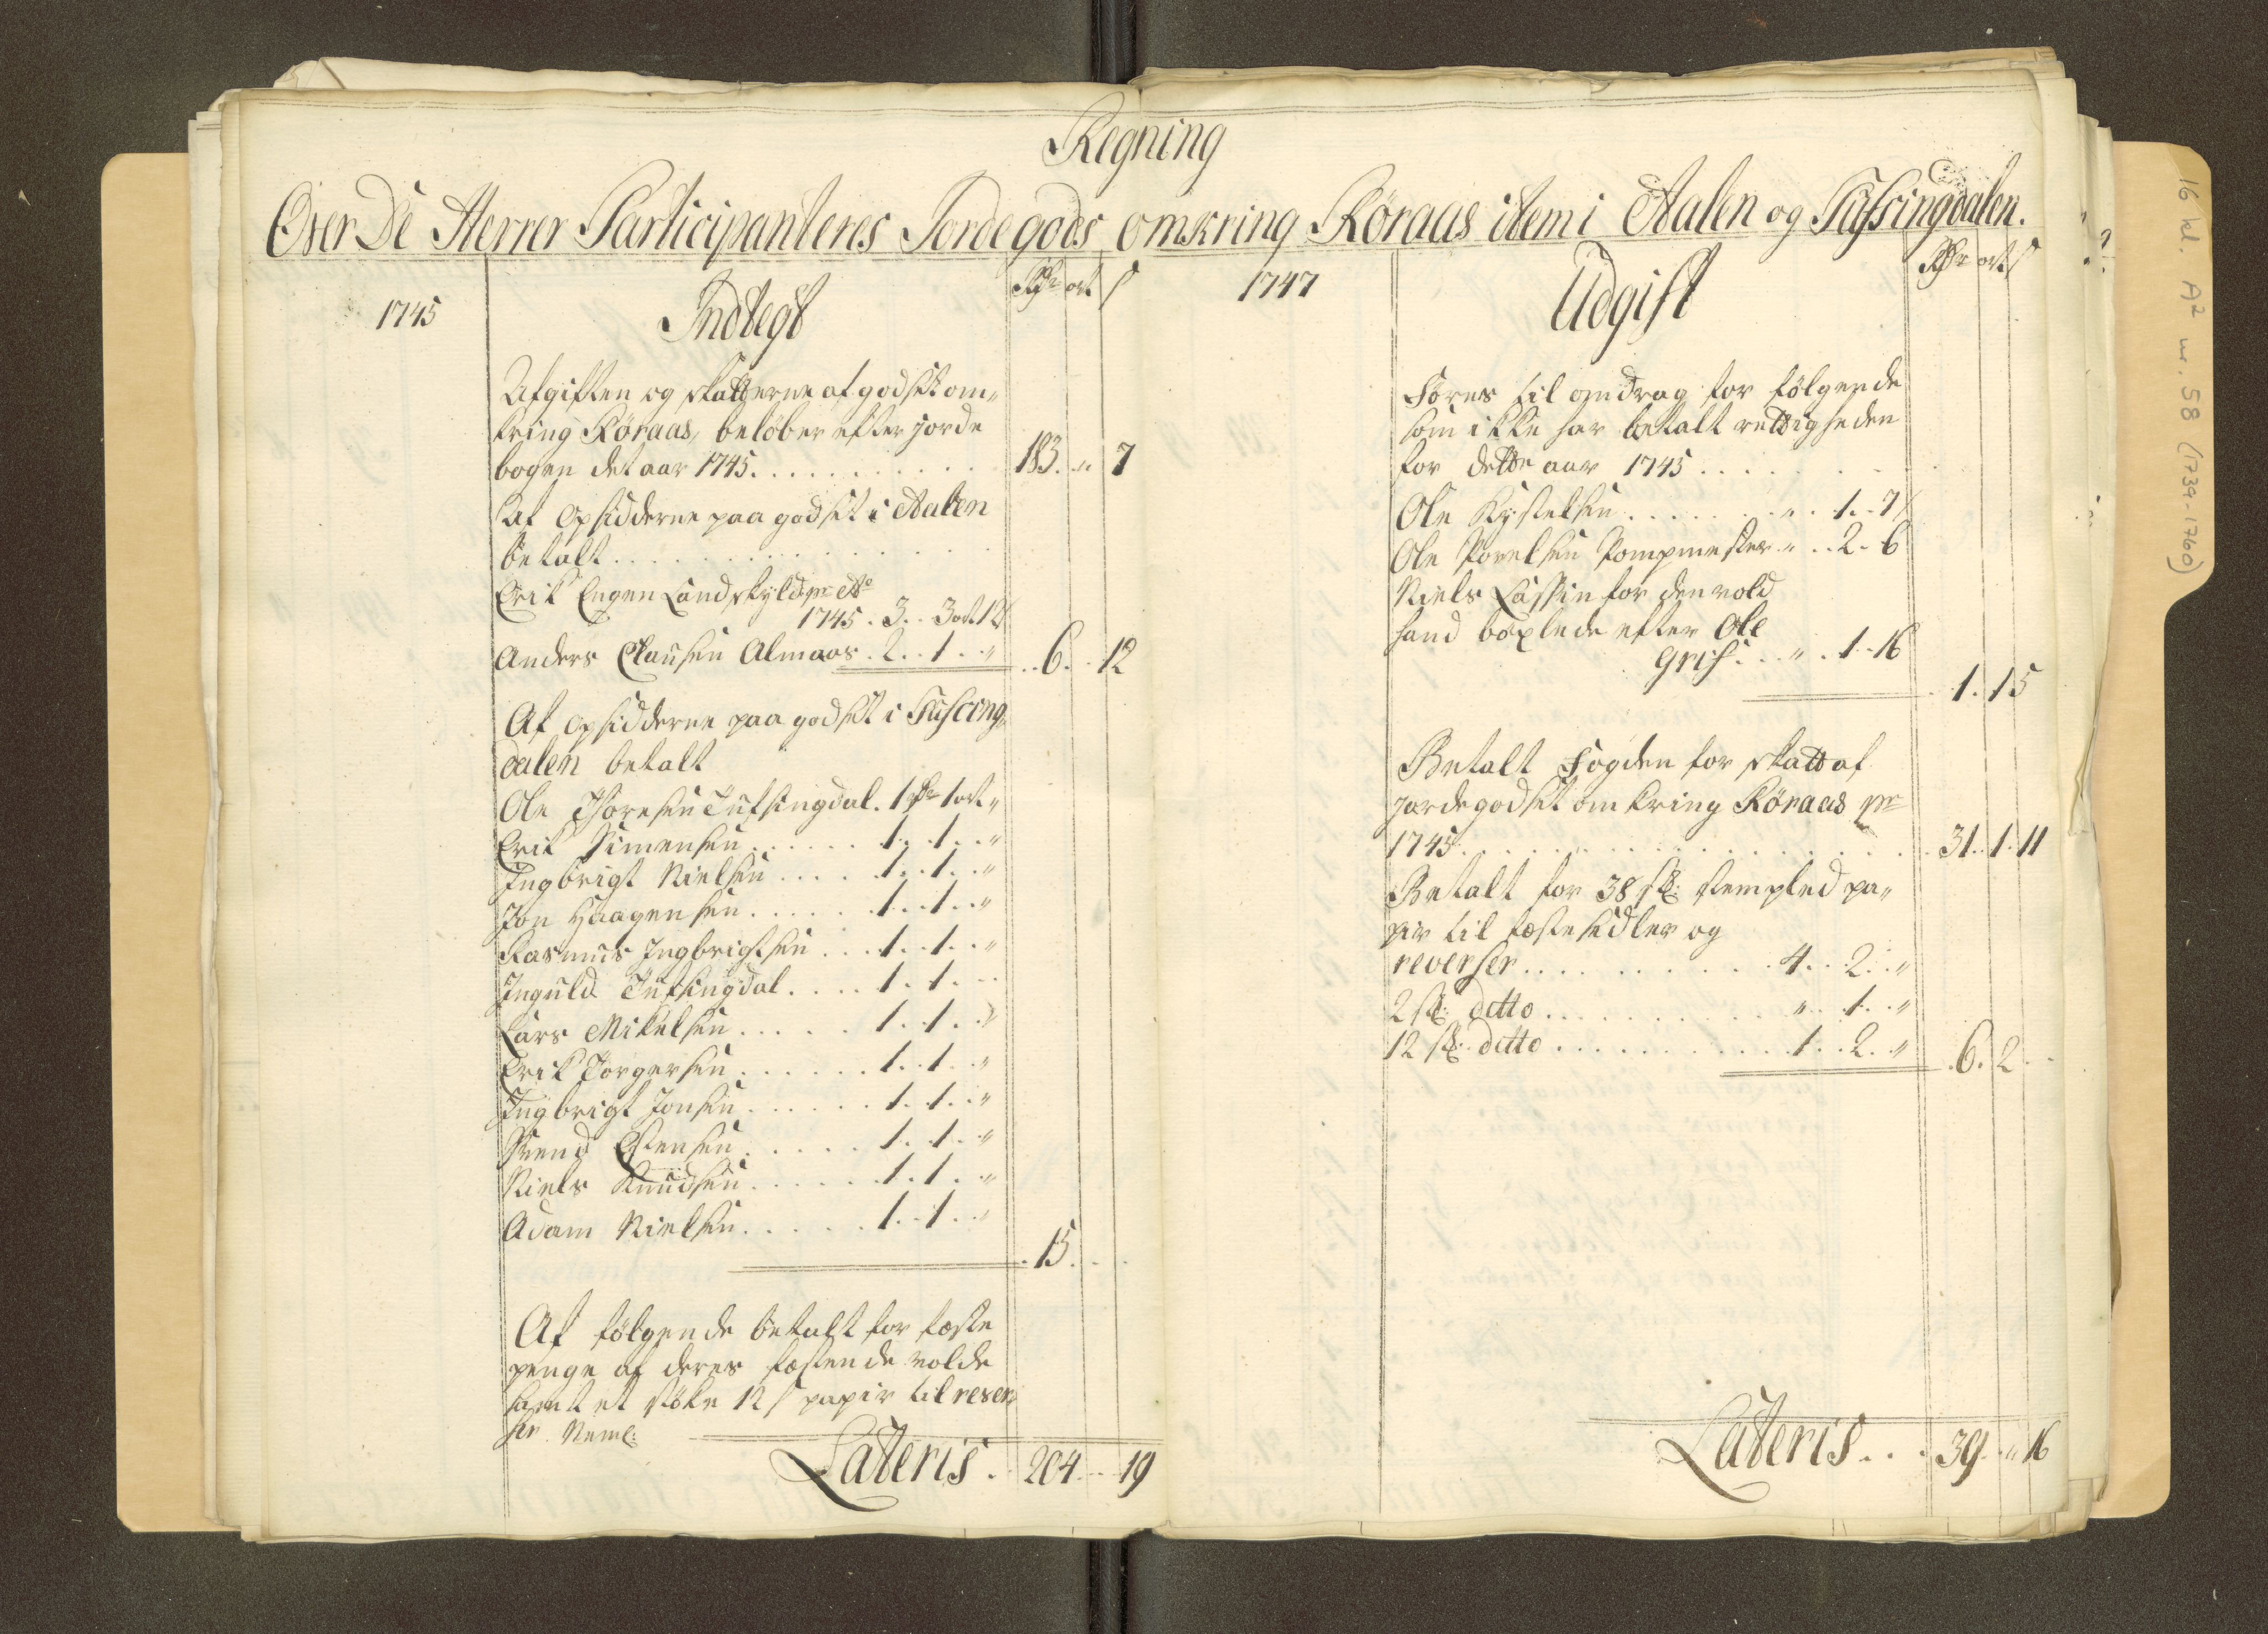 Regning
Over De Herrer Participanteres Jordegods omkring Røraas item i Aalen og Tufsingdalen.
1745
Indtegt
Rdr ort s
Afgiften og skatterne af godset om„
kring Røraas, beløber efter jorde
bogen det aar 1745. 183. „ 7
Af opsidderne paa godset i Aalen
betalt
Erik Engen Landskyld pr Ao
1745. 3.. 3 ort 12
Anders Clausen Almaas. 2.. 1.. „ ..6... 12
Af opsidderne paa godset i Tufsing„
dalen betalt
Ole Thoresen Tufsingdal. 1 rdr 1 ort „
Erik Simensen 1. 1.. „
Ingbrigt Nielsen 1.. 1.. „
Jon Haagensen 1.. 1.. „
Rasmus Ingbrigtsen 1.. 1.. „
Inguld Tufsingdal 1. 1...
Lars Mikelsen 1. 1.. „
Erik Jørgersen 1. 1. „
Ingbrigt Jonsen 1. 1.. „
Svend Estensen 1. 1.. „
Niels Knudsen 1. 1. „
Adam Nielsen 1.. 1.. „
. 15...
Af følgende betalt for fæste
penge af deres fæstende volde
samt et støke 12 s papir til rever„
ser. Neml:
Lateris. 204... 19
1747
Udgift
Rdr ort s
Føres til andrag for følgende
som ikke har betalt rettigheden
for dette aar 1745
Ole Kystelsen „. 1.. 7
Ole Povelsen Pompmester „.. 2. 6
Niels Lassen for den vold
hand böxlede efter Ole
Gris... „. 1. 16
1. 15
Betalt Fogden for skatt af
jordegodset omkring Røraas pr
1745 31. 1. 11
Betalt for 38 st: stempled pa„
pir til fæstesedler og
reverser 4.. 2.. „
2 st: ditto „. 1.. „
12 st: ditto 1.. 2. „ .6. 2..
Lateris... 39. „ 16
16 kl. A2 nr. 58 (1739-1760)